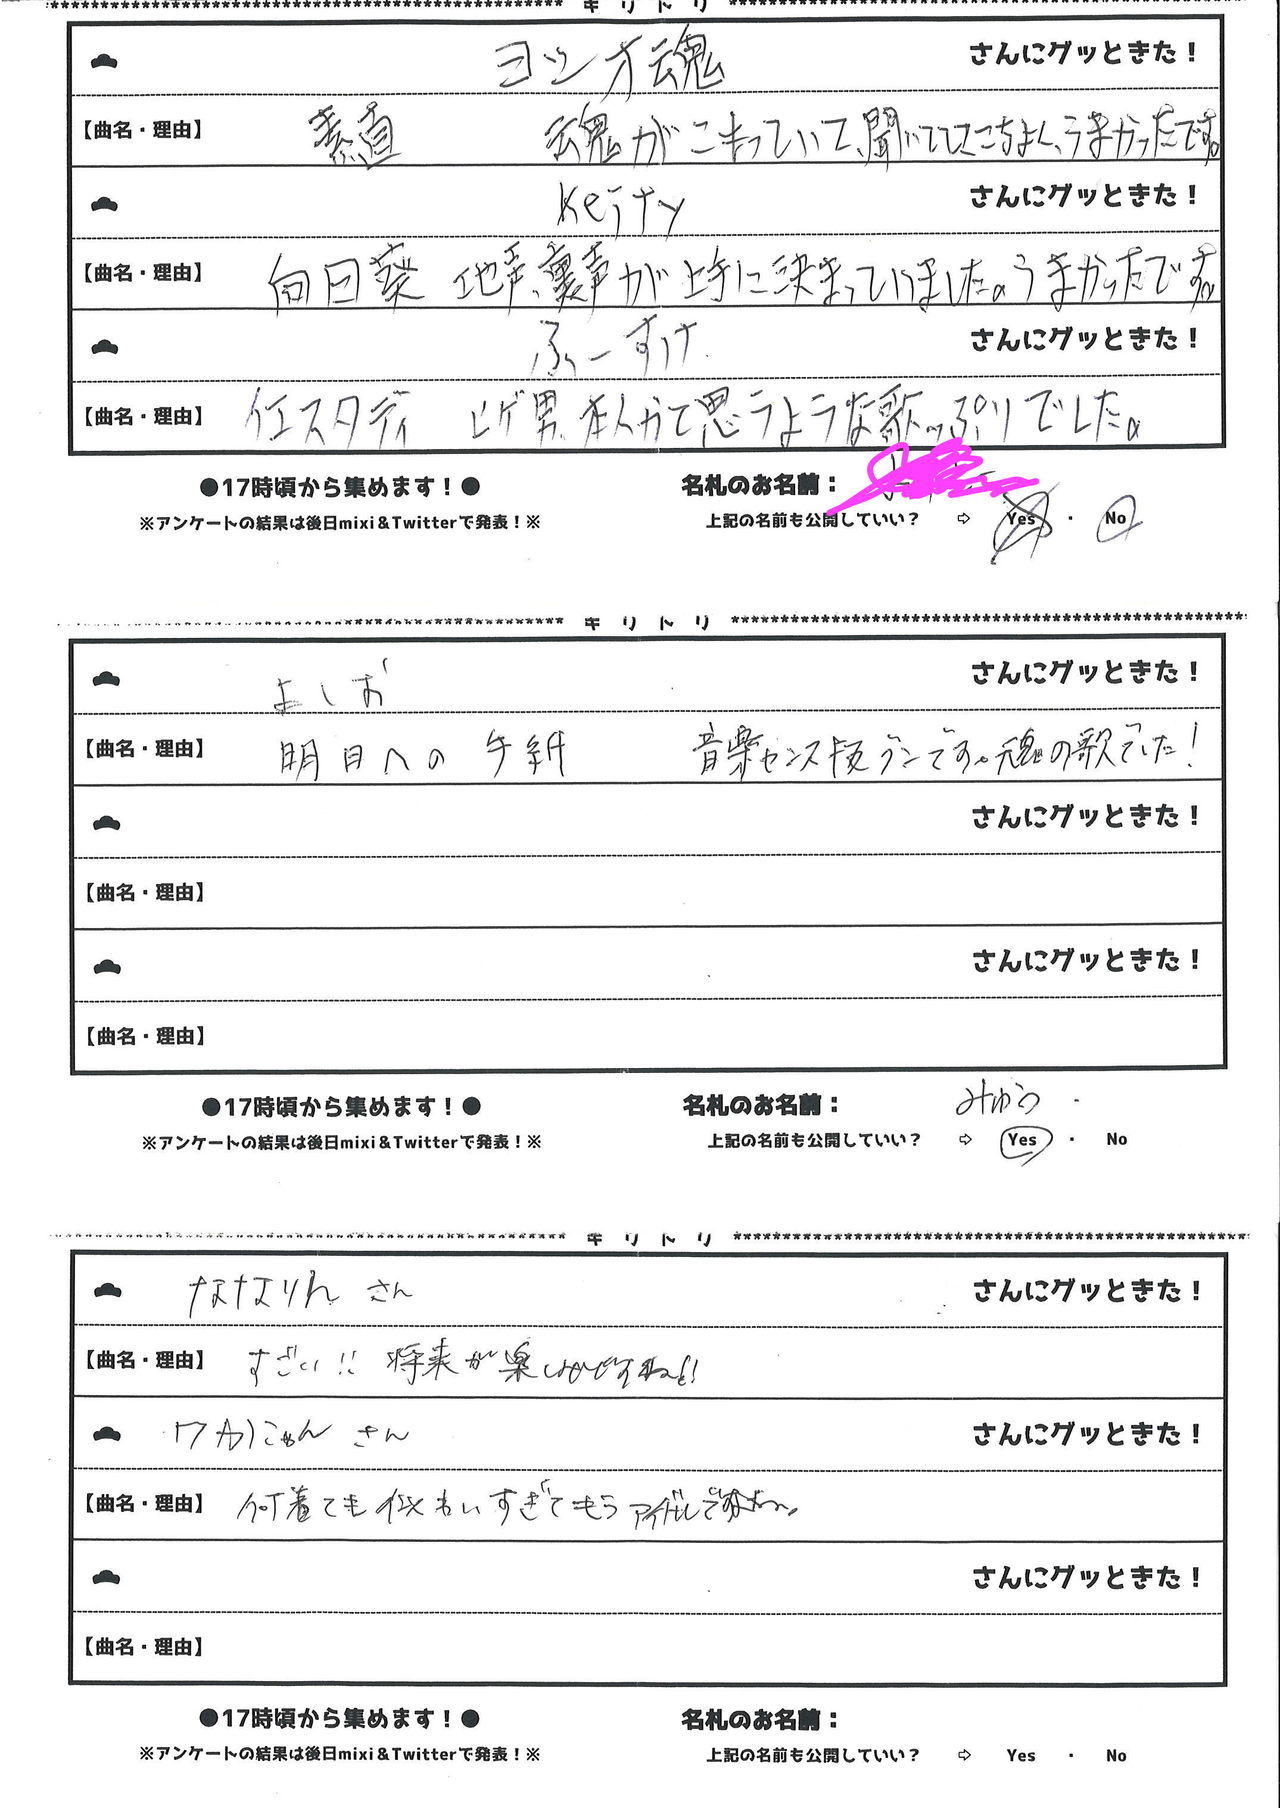 キリトリ
ヨシオ魂 さんにグッときた！
【曲名・理由】 素直 魂がこもっていて、聞いててここちよく、うまかったです。
Keity さんにグッときた！
【曲名・理由】 向日葵 地声、裏声が上手に決まっていました。うまかったです。
ふーすけ さんにグッときた！
【曲名・理由】 イエスタデイ ヒゲ男、本人かて思うような歌っぷりでした。
●17時頃から集めます！● 名札のお名前：
※アンケートの結果は後日mixi＆Twitterで発表！※ 上記の名前も公開していい？ ⇨ Yes ・ No
キリトリ
よしお さんにグッときた！
【曲名・理由】 明日への手紙 音楽センス抜グンです。魂の歌でした！
さんにグッときた！
【曲名・理由】
さんにグッときた！
【曲名・理由】
●17時頃から集めます！● 名札のお名前： みゅう
※アンケートの結果は後日mixi＆Twitterで発表！※ 上記の名前も公開していい？ ⇨ Yes ・ No
キリトリ
ななりん さん さんにグッときた！
【曲名・理由】 すごい!! 将来が楽しみですね!!
ワカにゃん さん さんにグッときた！
【曲名・理由】 何着ても似合いすぎてもうアイドルですね〜。
さんにグッときた！
【曲名・理由】
●17時頃から集めます！● 名札のお名前：
※アンケートの結果は後日mixi＆Twitterで発表！※ 上記の名前も公開していい？ ⇨ Yes ・ No